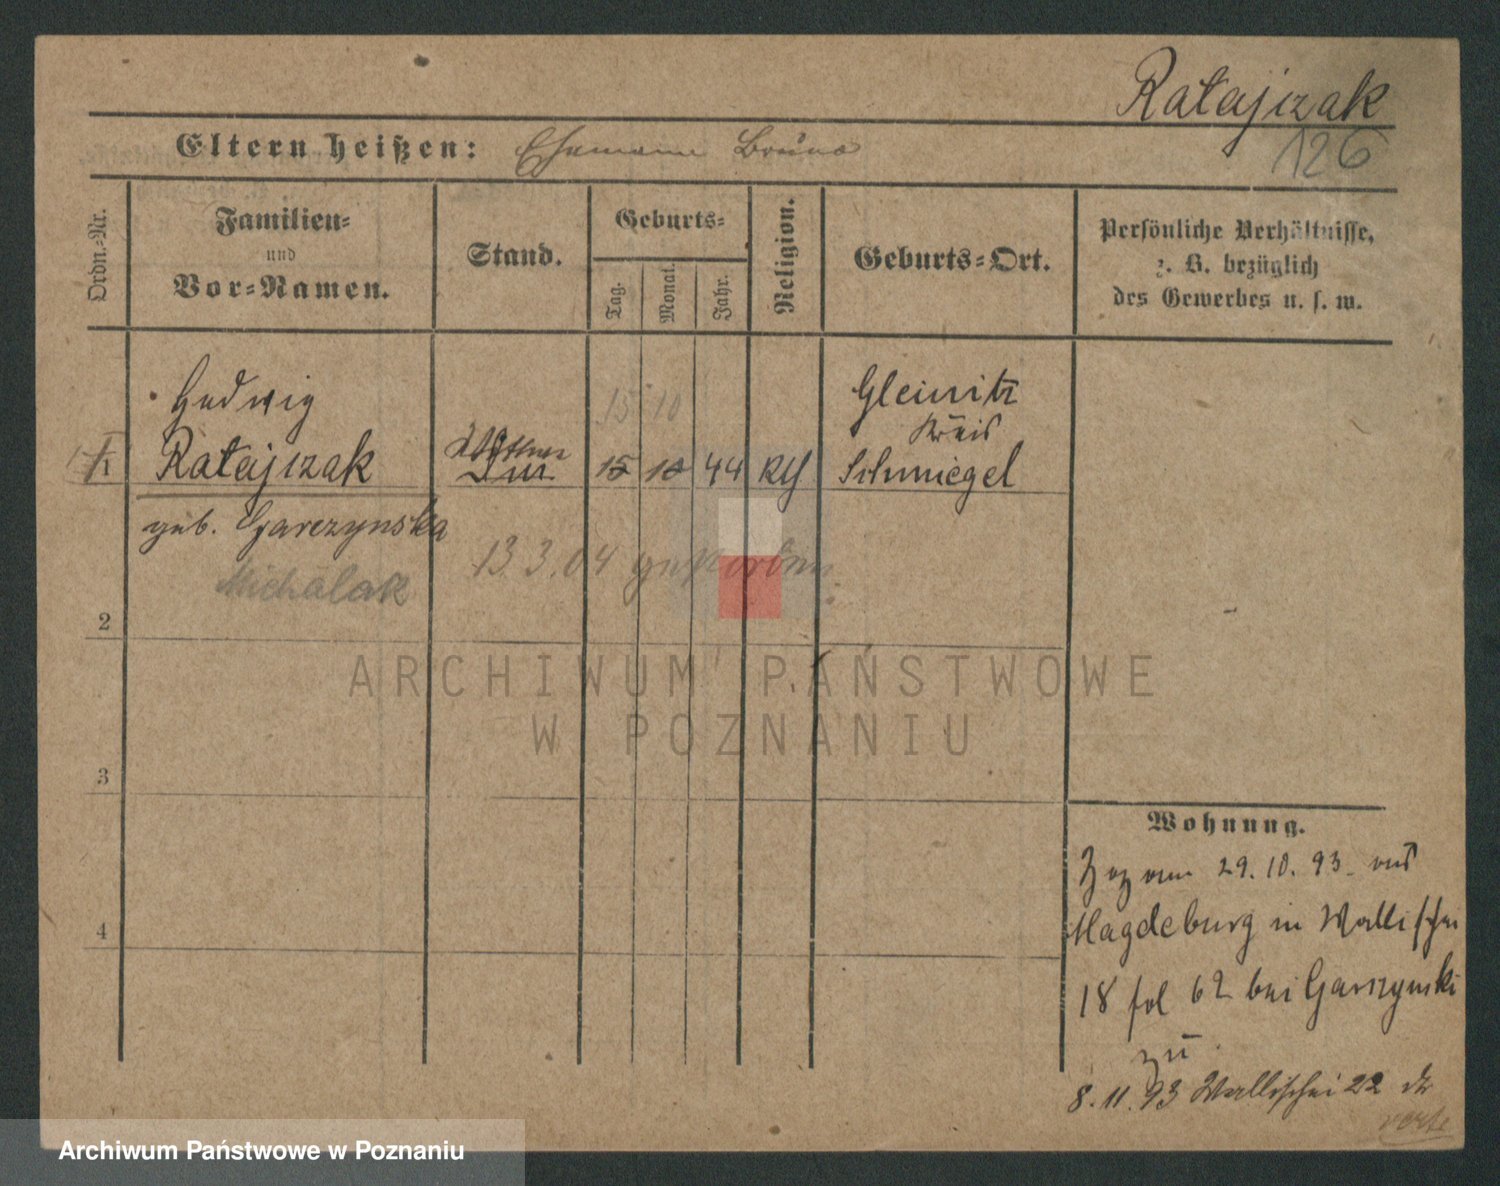 Ratajczak
126
Eltern heißen: Ehemann Bruno
Ordn.-Nr.
Familien-
und
Vor-Namen.
Stand.
Geburts-
Tag.
Monat.
Jahr.
Religion.
Geburts-Ort.
Persönliche Verhältnisse,
z. B. bezüglich
des Gewerbes u. s. w.
Hedwig
15 10
Gleinitz
Kreis
1
Ratajczak
15 10 44 Kth
Schmiegel
geb. Garczynska
13.3.04 gestorben.
Michalak
2
3
4
Wohnung.
Zog am 29.10.93. aus
Magdeburg in Wallischei
18 fol 62 bei Garczynski
zu
8.11.93 Wallischei 22
verte
ARCHIWUM PAŃSTWOWE
W POZNANIU
Archiwum Państwowe w Poznaniu